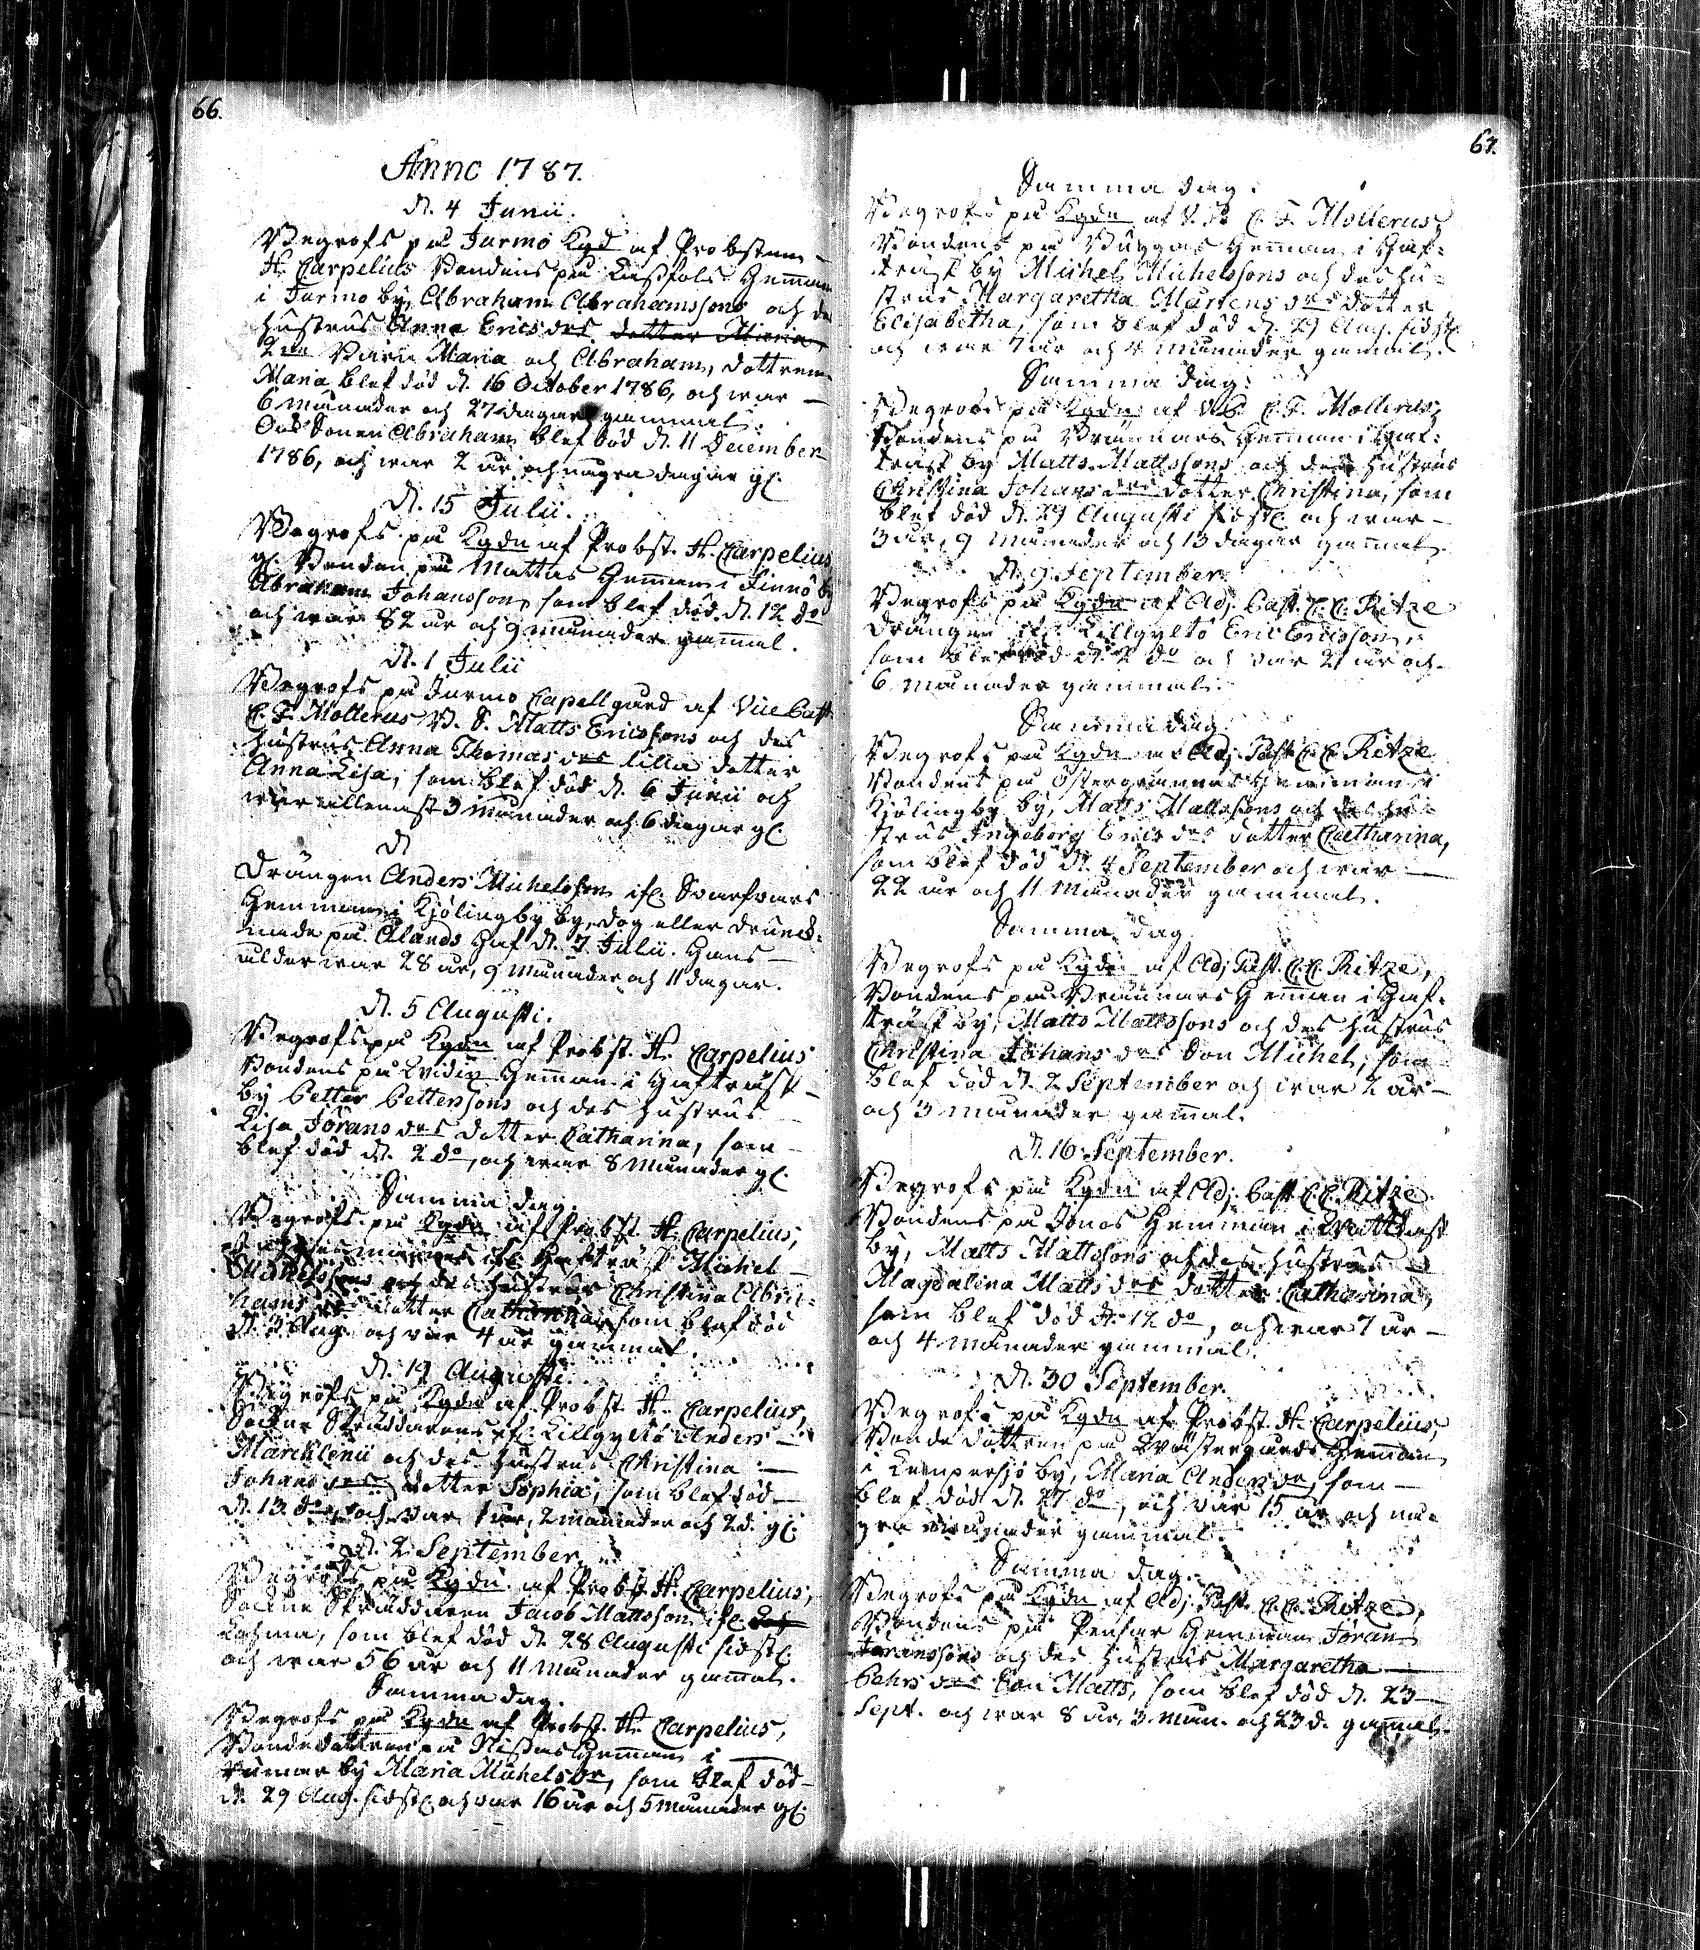 66.
Anno 1787.
d. 4 Junii.
Begrofs på Jurmo Kgd af Probsten
H. Carpelius Bondens på Hemman
i Jurmo by, Abraham Abrahamssons och des
hustrus Anna Ericsdrs dotter Maria
2ne Barn Maria och Abraham, dottren
Maria blef död d. 16 October 1786, och war
6 månader och 27 dagar gammal.
Och Sonen Abraham blef död d. 11 December
1786, och war 2 år och några dagar gl.
d. 15 Julii.
Begrofs på Kgdn af Probst. H. Carpelius
gl. Bonden på Mattas Hemman i Finnö by
Abraham Johansson, som blef död d. 12 do
och war 82 år och 9 månader gammal.
d. 1 Julii
Begrofs på Jurmo Capellgård af Vice Past.
C. F. Mollerus B. S. Matts Ericssons och des
hustrus Anna Thomasdrs lilla dotter
Anna Lisa, som blef död d. 6 Junii och
war allenast 3 månader och 6 dagar gl.
d.
Drängen Anders Michelsson ifr. Svarfvars
Hemman i Kjölingby by, dog eller drunck-
nade på Ålands Haf d. 7 Julii. Hans
ålder war 28 år, 9 månader och 11 dagar.
d. 5 Augusti.
Begrofs på Kgdn af Probst. H. Carpelius
Bondens på Hemman i Hafträsk
by Petter Petterssons och des hustrus
Lisa Jöransdrs dotter Catharina, som
blef död d. 2 do, och war 8 månader gl.
Samma dag
Begrofs på Kgdn af Probst H. Carpelius,
ifr. Hafträsk Michel
Michelssons och des hustrus Christina Abra-
hamsdrs dotter Catharina, som blef död
d. 3 Aug. och war 4 år gammal.
d. 19 Augusti.
Begrofs på Kgdn af Probst H. Carpelius,
Sockne Skräddarens ifr. Lillgyltö Anders
Marcklenii och des hustrus Christina
Johansdrs dotter Sophia, som blef död
d. 13 do, och war 1 år, 2 månader och 2 d. gl.
d. 2 September
Begrofs på Kgdn af Probst H. Carpelius,
Sockne Skräddaren Jacob Mattsson ifr.
som blef död d. 28 Augusti sidstl.
och war 56 år och 11 månader gammal.
Samma dag.
Begrofs på Kgdn af Probst. H. Carpelius,
Bondedottren på Nissas Hemman i
by Maria Michelsdr, som blef död
d. 29 Aug. sidstl. och war 16 år och 5 månader gl.
67.
Samma dag.
Begrofs på Kgdn af V. P. C. F. Mollerus
Bondens på Byggas Hemman i Haf-
träsk by Michel Michelssons och des hu-
strus Margaretha Mårtensdrs dotter
Elisabetha, som blef död d. 29 Aug. sidstl.
och war 7 år och 4 månader gammal.
Samma dag.
Begrofs på Kgdn af V. P. C. F. Mollerus,
Bondens på Brännars Hemman i Haf-
träsk by Matts Mattssons och des hustrus
Christina Johansdrs dotter Christina, som
blef död d. 29 Augusti sidstl. och war
3 år, 9 månader och 13 dagar gammal.
d. 9 September
Begrofs på Kgdn af Adj. Past. C. C. Ritze
Drängen ifr. Lillgyltö Eric Ericsson,
som blef död d. 2 do och war 21 år och
6 månader gammal.
Samma dag
Begrofs på Kgdn af Adj. Past. C. C. Ritze
Bondens på Östergrannas Hemman i
Kjölingby by, Matts Mattssons och des hu-
strus Ingeborg Ericsdrs dotter Catharina,
som blef död d. 4 September och war
22 år och 11 månader gammal.
Samma dag
Begrofs på Kgdn af Adj Past. C. C. Ritze,
Bondens på Brännars Hemman i Haf-
träsk by, Matts Mattssons och des hustrus
Christina Johansdrs Son Michel, som
blef död d. 2 September och war 2 år
och 3 månader gammal.
d. 16 September.
Begrofs på Kgdn af Adj. Past C. C. Ritze
Bondens på Jonas Hemman i
by, Matts Mattssons och des hustrus
Magdalena Mattsdrs dotter Catharina,
som blef död d. 12 do, och war 7 år
och 4 månader gammal.
d. 30 September.
Begrofs på Kgdn af Probst H. Carpelius,
Bonde dottren på Wästergårds Hemman
i Lempersjö by, Maria Andersdr, som
blef död d. 27 do, och war 15 år och nå-
gra månader gammal.
Samma dag.
Begrofs på Kgdn af Adj. Past. C. C. Ritze,
Bondens på Hemman Jöran
Jöranssons och des hustrus Margaretha
Pehrsdrs Son Matts, som blef död d. 23
Sept. och war 8 år, 3 mån. och 23 d. gammal.